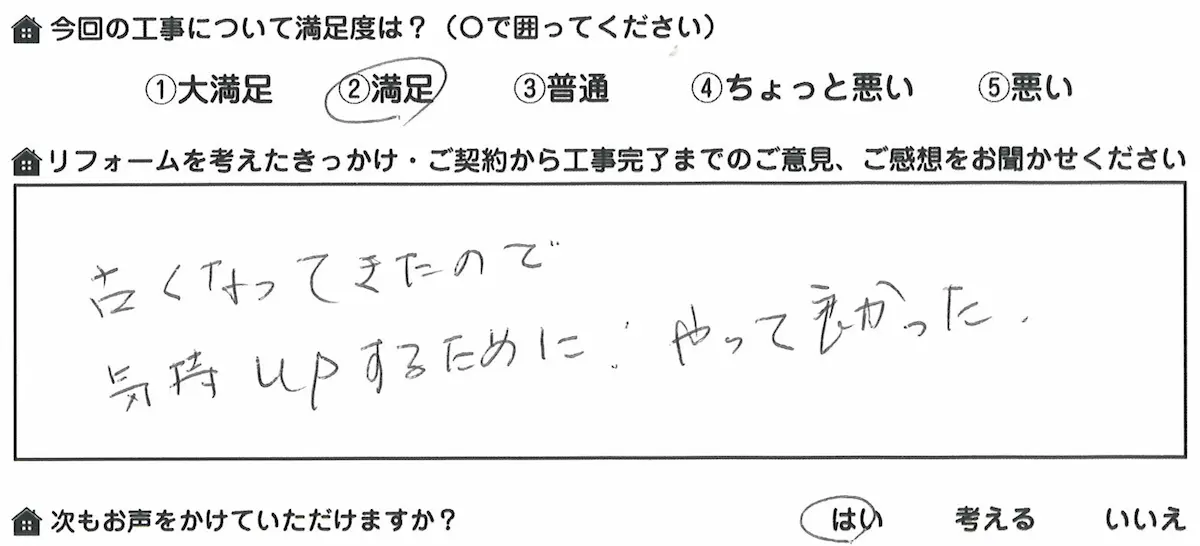 今回の工事について満足度は？（〇で囲ってください）
①大満足 ②満足 ③普通 ④ちょっと悪い ⑤悪い
リフォームを考えたきっかけ・ご契約から工事完了までのご意見、ご感想をお聞かせください
古くなってきたので
気持upするために！やって良かった.
次もお声をかけていただけますか？ はい 考える いいえ